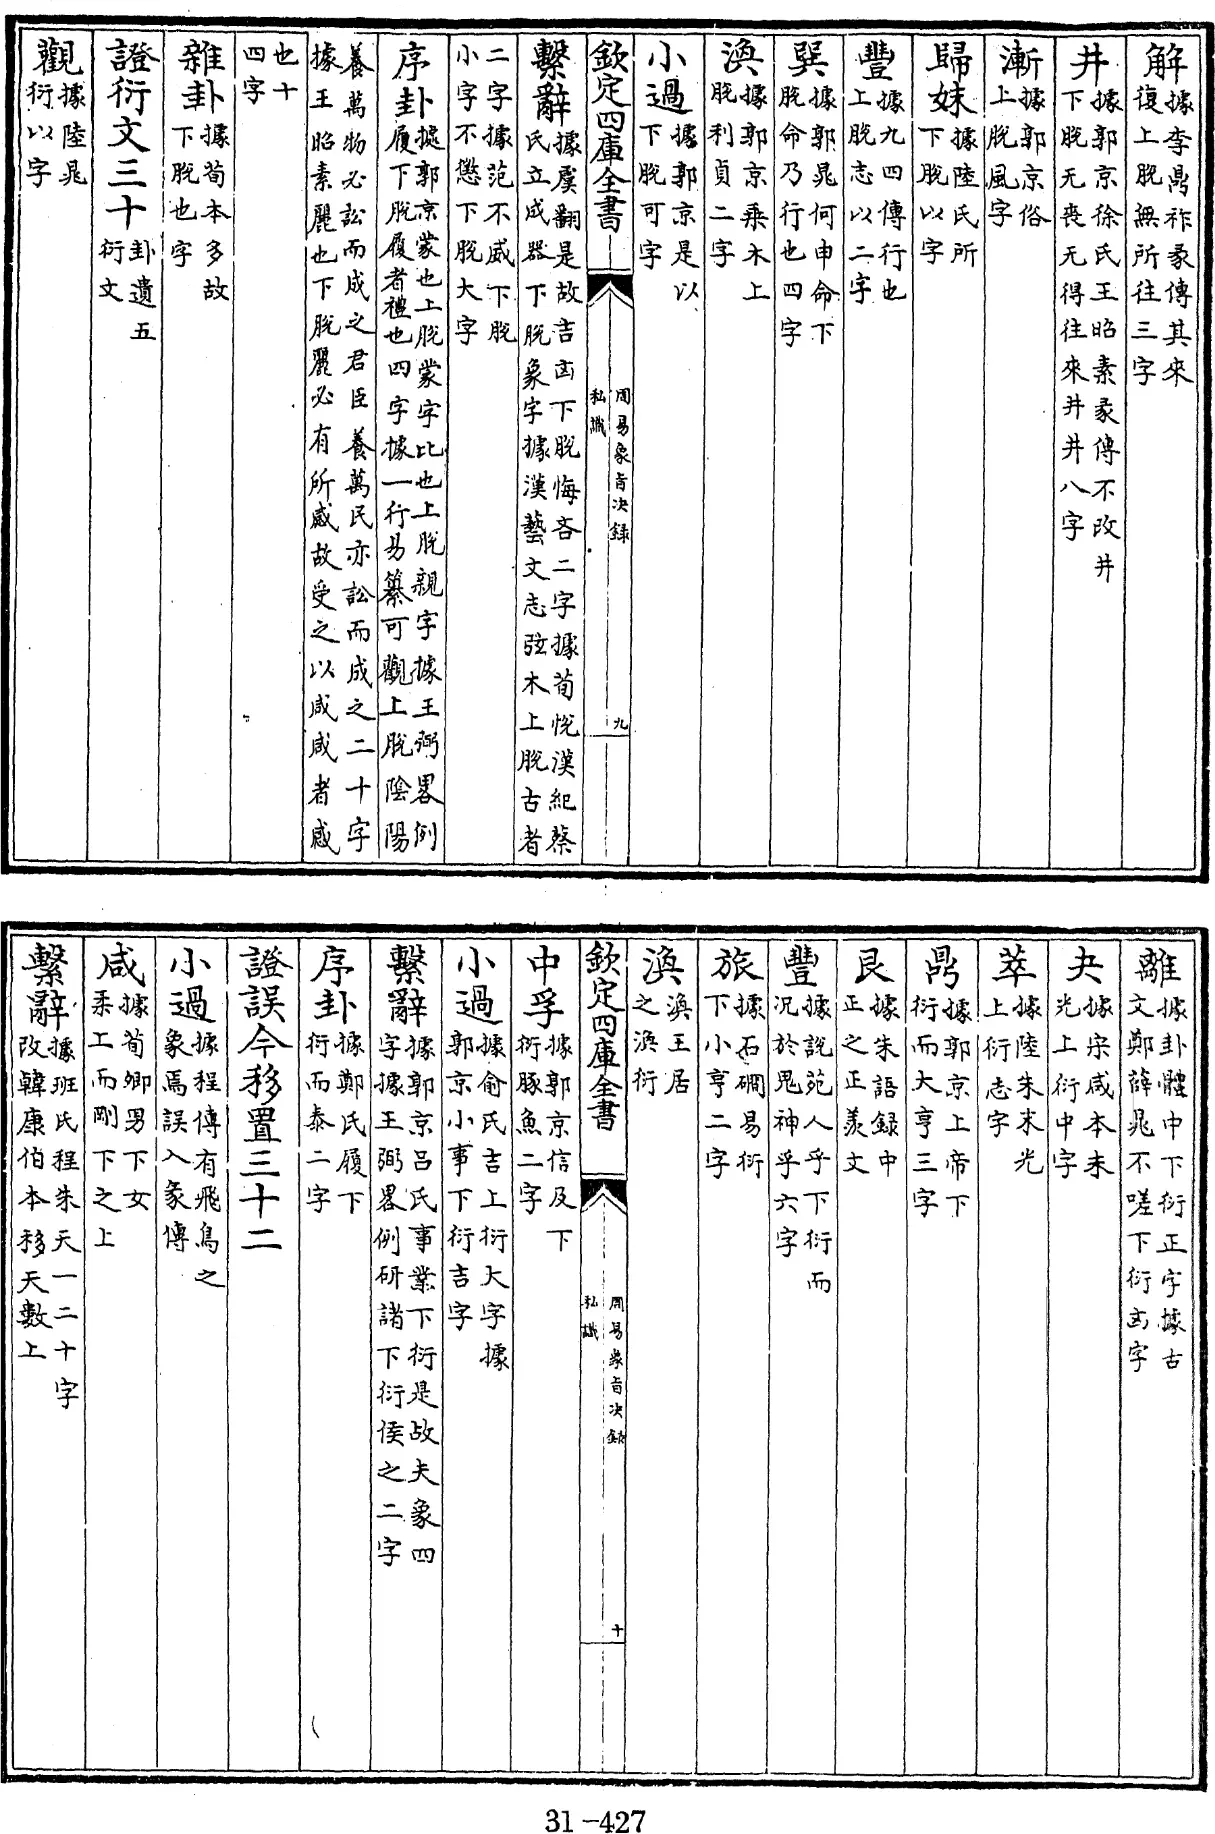 解據李鼎祚彖傳其來復上脫無所往三字
井據郭京徐氏王昭素彖傳不改井下脫无喪无得往來井井八字
漸據郭京俗上脫風字
歸妹據陸氏所下脫以字
豐據九四傳行也上脫志以二字
巽據郭晁何申命下脫命乃行也四字
渙據郭京乘木上脫利貞二字
小過據郭京是以下脫可字
欽定四庫全書
周易象旨決錄
私識
九
繫辭據虞翻是故吉凶下脫悔吝二字據荀悅漢紀蔡氏立成器下脫象字據漢藝文志弦木上脫古者
二字據范不威下脫小字不懲下脫大字
序卦據郭京蒙也上脫蒙字比也上脫親字據王弼畧例履下脫履者禮也四字據一行易纂可觀上脫陰陽
養萬物必訟而成之君臣養萬民亦訟而成之二十字據王昭素麗也下脫麗必有所感故受之以咸咸者感
也十四字
雜卦據荀本多故下脫也字
證衍文三十卦遺五衍文
觀據陸晁衍以字
離據卦體中下衍正字據古文鄭薛晁不嗟下衍凶字
夬據宋咸本未光上衍中字
萃據陸朱未光上衍志字
鼎據郭京上帝下衍而大亨三字
艮據朱語錄中正之正羨文
豐據說苑人乎下衍而況於鬼神乎六字
旅據石磵易衍下小亨二字
渙渙王居之渙衍
欽定四庫全書
周易象旨決錄
私識
十
中孚據郭京信及下衍豚魚二字
小過據俞氏吉上衍大字據郭京小事下衍吉字
繫辭據郭京呂氏事業下衍是故夫象四字據王弼畧例研諸下衍侯之二字
序卦據鄭氏履下衍而泰二字
證誤今移置三十二
小過據程傳有飛鳥之象焉誤入彖傳
咸據荀卿男下女柔上而剛下之上
繫辭據班氏程朱天一二十字改韓康伯本移天數上
31-427